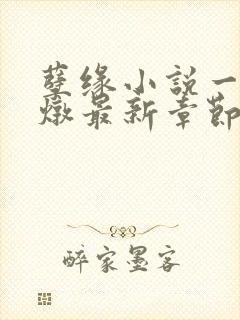 孽缘小説一
燉最新章節
醉家墨客